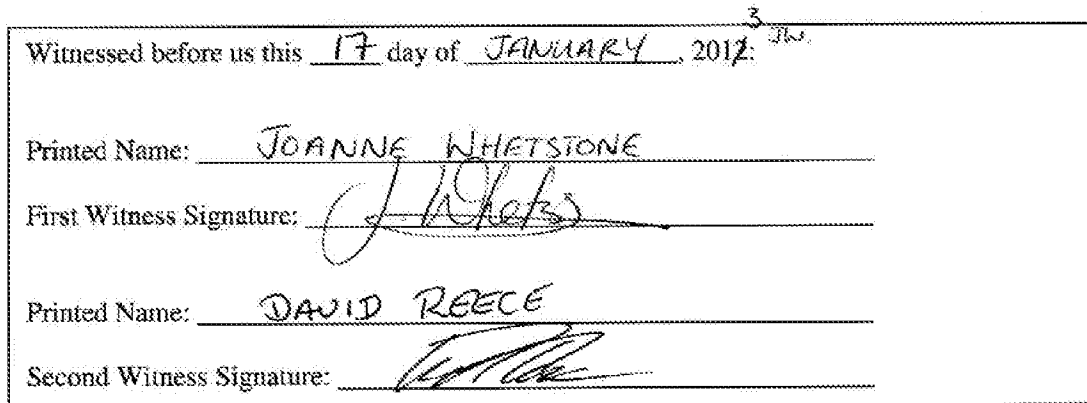 3
Witnessed before us this 17 day of JANUARY, 2012. JW.
Printed Name: JOANNE WHETSTONE
First Witness Signature: J Whets
Printed Name: DAVID REECE
Second Witness Signature: